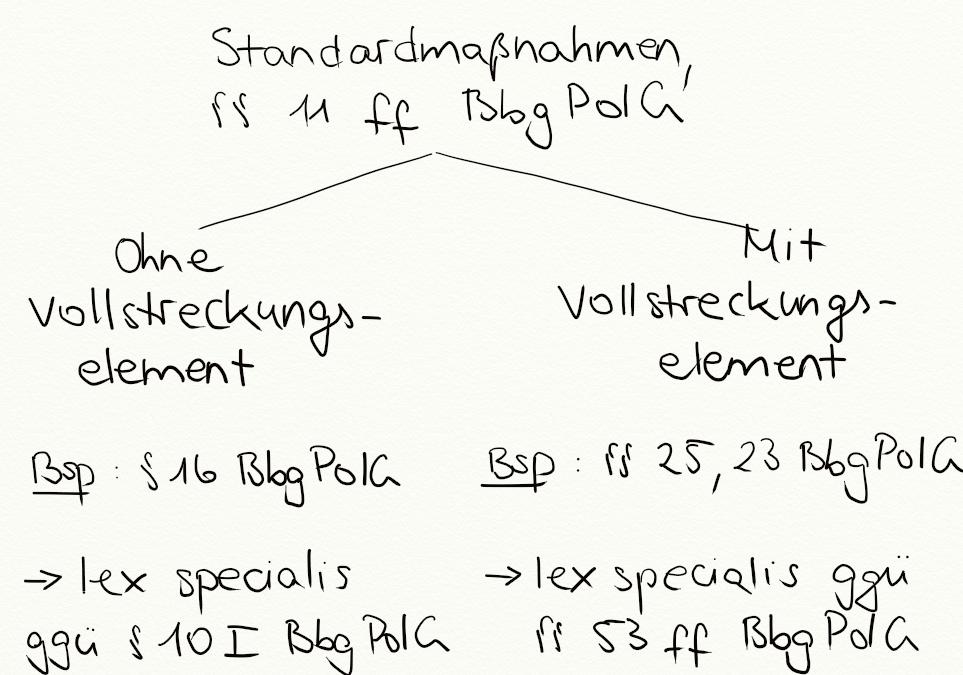 Standardmaßnahmen,
§§ 11 ff BbgPolG
Ohne
Vollstreckungs-
element
Bsp : § 16 BbgPolG
→ lex specialis
ggü § 10 I BbgPolG
Mit
Vollstreckungs-
element
Bsp : §§ 25, 23 BbgPolG
→ lex specialis ggü
§§ 53 ff BbgPolG